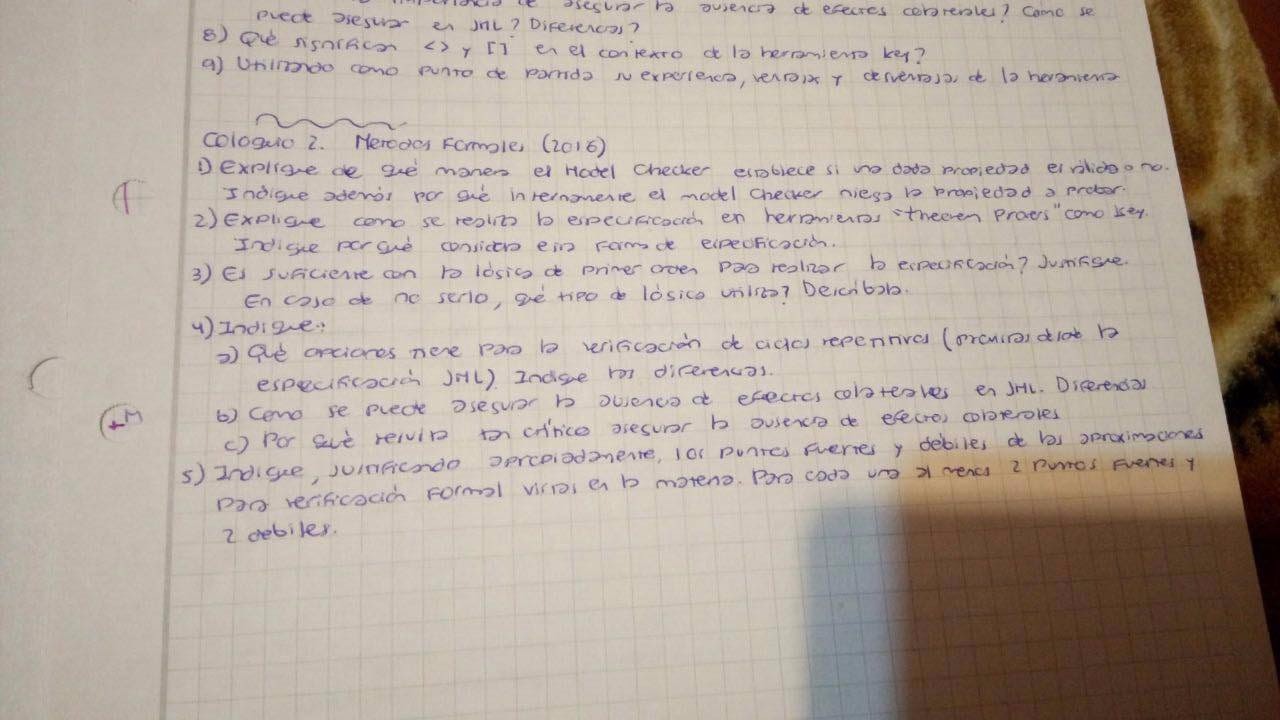 asegurar la ausencia de efectos colaterales? Como se
puede asegurar en JML? Diferencias?
8) Qué significan <> y [] en el contexto de la herramienta key?
9) Utilizando como punto de partida su experiencia, ventajas y desventajas de la herramienta
Coloquio 2. Metodos Formales (2016)
1) Explique de qué manera el Model Checker establece si una dada propiedad es válida o no.
Indique además por qué internamente el model checker niega la propiedad a probar.
2) Explique como se realiza la especificación en herramientas "theoren provers" como key.
Indique por qué considera esa forma de especificación.
3) Es suficiente con la lógica de primer orden para realizar la especificación? Justifique.
En caso de no serlo, qué tipo de lógica utiliza? Describala.
4) Indique:
a) Qué opciones tiene para la verificación de ciclos repetitivos ( la
especificación JML). Indique las diferencias.
b) Como se puede asegurar la ausencia de efectos colaterales en JML. Diferencias
c) Por qué resulta tan crítico asegurar la ausencia de efectos colaterales
5) Indique, justificando apropiadamente, los puntos fuertes y débiles de las aproximaciones
para verificación formal vistas en la materia. Para cada una al menos 2 puntos fuertes y
2 debiles.
T
+M